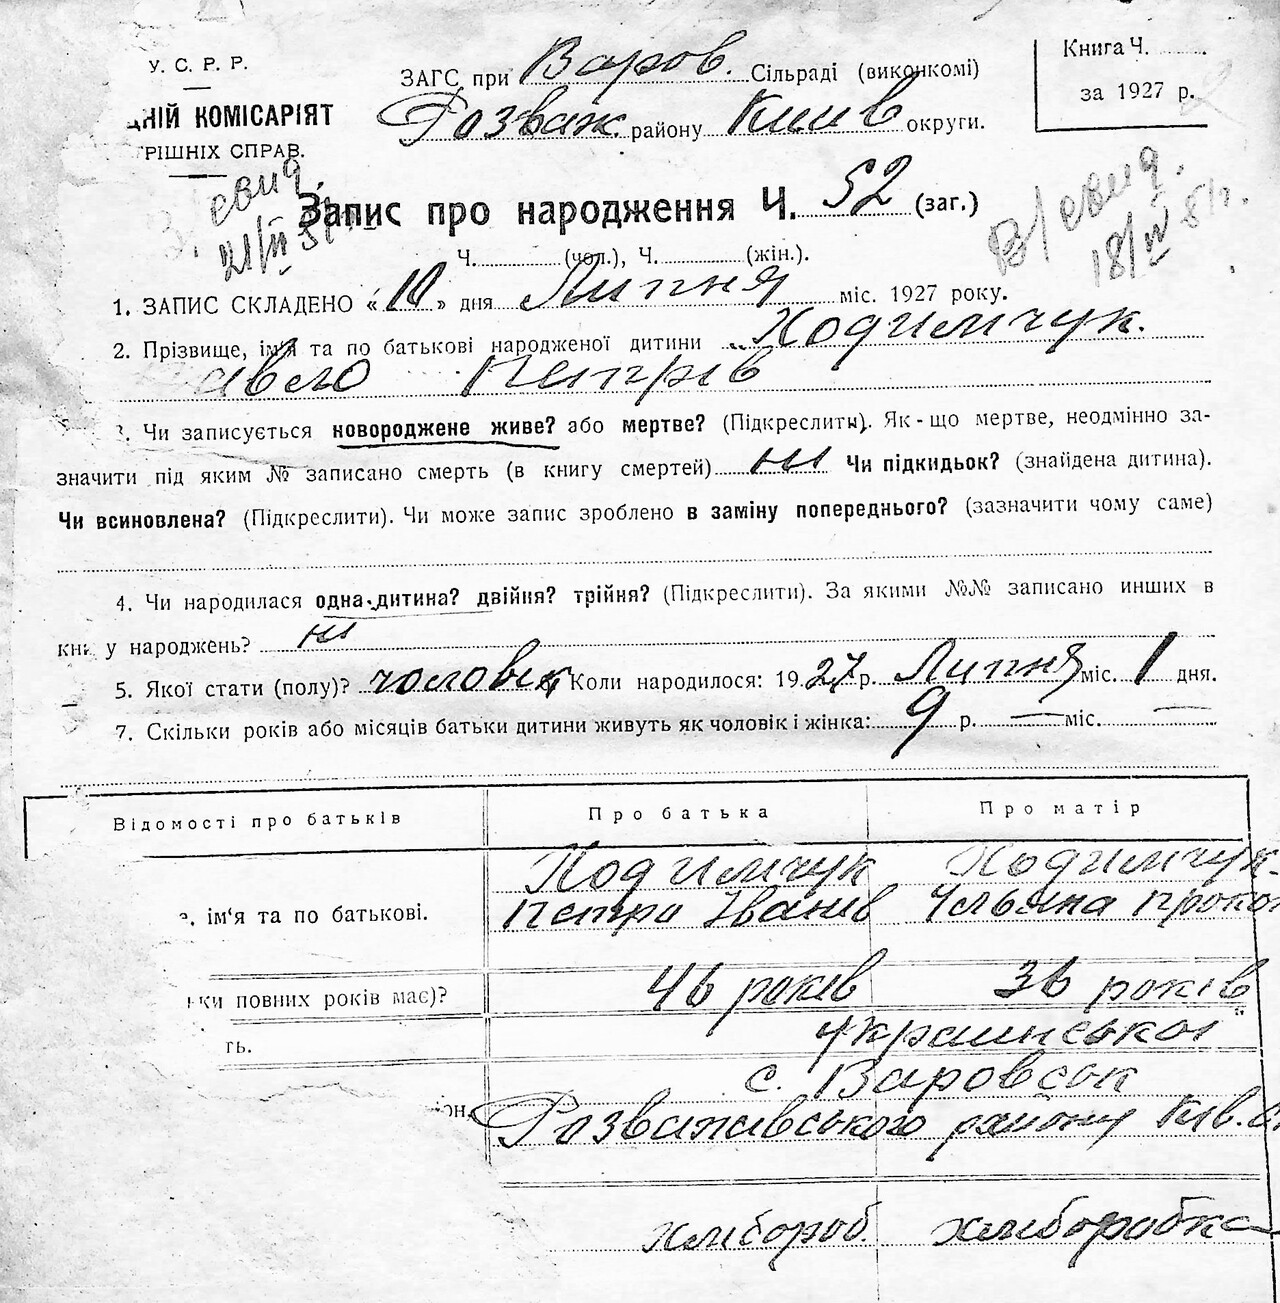 У. С. Р. Р.
ЗАГС при Варов. Сільраді (виконкомі)
Книга Ч.
ДНІЙ КОМІСАРІЯТ
Розваж. району Київ округи.
за 1927 р.
ТРІШНІХ СПРАВ.
свид.
В/свид.
Запис про народження Ч. 52 (заг.)
Ч. (чол.), Ч. (жін.).
1. ЗАПИС СКЛАДЕНО «10» дня Липня міс. 1927 року.
2. Прізвище, ім'я та по батькові народженої дитини Ходимчук.
авло Петрів
3. Чи записується новороджене живе? або мертве? (Підкреслити). Як-що мертве, неодмінно за-
значити під яким № записано смерть (в книгу смертей) ні Чи підкидьок? (знайдена дитина).
Чи всиновлена? (Підкреслити). Чи може запис зроблено в заміну попереднього? (зазначити чому саме)
4. Чи народилася одна дитина? двійня? трійня? (Підкреслити). За якими №№ записано инших в
кни у народжень? ні
5. Якої стати (полу)? чоловік Коли народилося: 1927 р. Липня міс. 1 дня.
7. Скільки років або місяців батьки дитини живуть як чоловік і жінка: 9 р. — міс. —
Відомості про батьків Про батька Про матір
Ходимчук Ходимчук.
, ім'я та по батькові. Петро Іванів Ульяна Проко
ьки повних років має)? 46 років 36 років
ть. української
с. Варовськ
он. Розважівського району Київ. о
хлібороб хліборобка